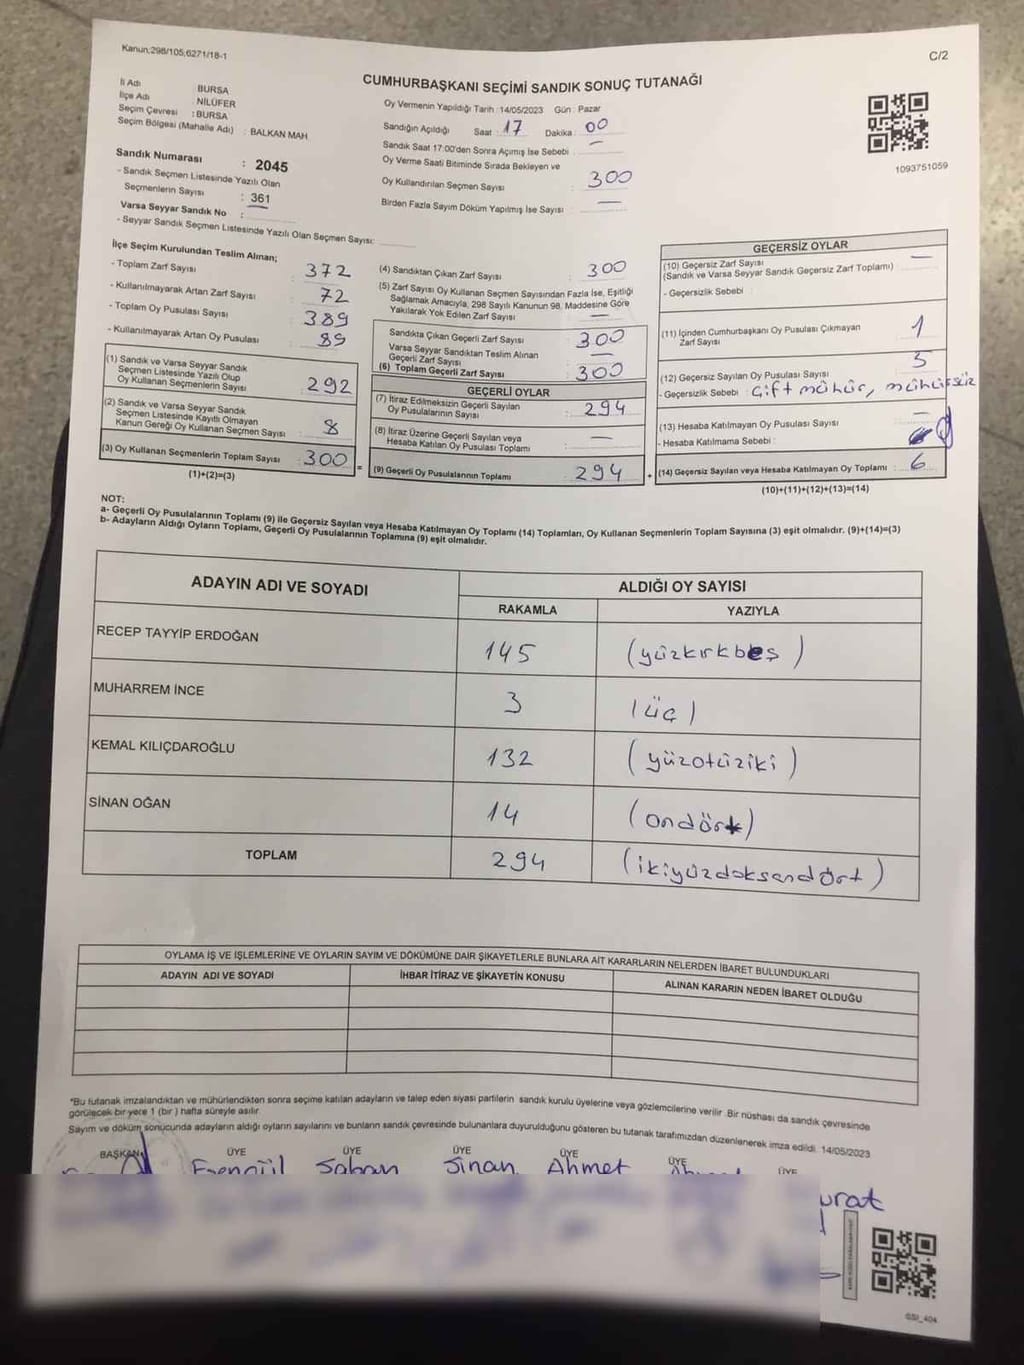 Kanun;298/105;6271/18-1
C/2
CUMHURBAŞKANI SEÇİMİ SANDIK SONUÇ TUTANAĞI
İl Adı BURSA
İlçe Adı : NİLÜFER
Seçim Çevresi : BURSA
Seçim Bölgesi (Mahalle Adı) : BALKAN MAH
Sandık Numarası : 2045
- Sandık Seçmen Listesinde Yazılı Olan
Seçmenlerin Sayısı : 361
Varsa Seyyar Sandık No :
- Seyyar Sandık Seçmen Listesinde Yazılı Olan Seçmen Sayısı:
Oy Vermenin Yapıldığı Tarih :14/05/2023 Gün : Pazar
Sandığın Açıldığı Saat : 17 Dakika : 00
Sandık Saat 17:00'den Sonra Açımış İse Sebebi : —
Oy Verme Saati Bitiminde Sırada Bekleyen ve
Oy Kullandırılan Seçmen Sayısı : 300
Birden Fazla Sayım Döküm Yapılmış İse Sayısı : —
1093751059
İlçe Seçim Kurulundan Teslim Alınan;
- Toplam Zarf Sayısı 372
- Kullanılmayarak Artan Zarf Sayısı 72
- Toplam Oy Pusulası Sayısı 389
- Kullanılmayarak Artan Oy Pusulası 89
(1) Sandık ve Varsa Seyyar Sandık
Seçmen Listesinde Yazılı Olup
Oy Kullanan Seçmenlerin Sayısı : 292
(2) Sandık ve Varsa Seyyar Sandık
Seçmen Listesinde Kayıtlı Olmayan
Kanun Gereği Oy Kullanan Seçmen Sayısı : 8
(3) Oy Kullanan Seçmenlerin Toplam Sayısı : 300
(1)+(2)=(3)
(4) Sandıktan Çıkan Zarf Sayısı : 300
(5) Zarf Sayısı Oy Kullanan Seçmen Sayısından Fazla İse, Eşitliği
Sağlamak Amacıyla, 298 Sayılı Kanunun 98. Maddesine Göre
Yakılarak Yok Edilen Zarf Sayısı : —
Sandıkta Çıkan Geçerli Zarf Sayısı : 300
Varsa Seyyar Sandıktan Teslim Alınan
Geçerli Zarf Sayısı : —
(6) Toplam Geçerli Zarf Sayısı : 300
GEÇERLİ OYLAR
(7) İtiraz Edilmeksizin Geçerli Sayılan
Oy Pusulalarının Sayısı : 294
(8) İtiraz Üzerine Geçerli Sayılan veya
Hesaba Katılan Oy Pusulası Toplamı : —
= (9) Geçerli Oy Pusulalarının Toplamı : 294 +
GEÇERSİZ OYLAR
(10) Geçersiz Zarf Sayısı —
(Sandık ve Varsa Seyyar Sandık Geçersiz Zarf Toplamı) :
- Geçersizlik Sebebi :
(11) İçinden Cumhurbaşkanı Oy Pusulası Çıkmayan
Zarf Sayısı : 1
(12) Geçersiz Sayılan Oy Pusulası Sayısı : 5
- Geçersizlik Sebebi : Çift mühür, mühürsüz
(13) Hesaba Katılmayan Oy Pusulası Sayısı : —
- Hesaba Katılmama Sebebi :
(14) Geçersiz Sayılan veya Hesaba Katılmayan Oy Toplamı : 6
(10)+(11)+(12)+(13)=(14)
NOT:
a- Geçerli Oy Pusulalarının Toplamı (9) ile Geçersiz Sayılan veya Hesaba Katılmayan Oy Toplamı (14) Toplamları, Oy Kullanan Seçmenlerin Toplam Sayısına (3) eşit olmalıdır. (9)+(14)=(3)
b- Adayların Aldığı Oyların Toplamı, Geçerli Oy Pusulalarının Toplamına (9) eşit olmalıdır.
ADAYIN ADI VE SOYADI ALDIĞI OY SAYISI
RAKAMLA YAZIYLA
RECEP TAYYİP ERDOĞAN 145 (yüzkırkbeş)
MUHARREM İNCE 3 (üç)
KEMAL KILIÇDAROĞLU 132 (yüzotüziki)
SİNAN OĞAN 14 (ondört)
TOPLAM 294 (ikiyüzdoksandört)
OYLAMA İŞ VE İŞLEMLERİNE VE OYLARIN SAYIM VE DÖKÜMÜNE DAİR ŞİKAYETLERLE BUNLARA AİT KARARLARIN NELERDEN İBARET BULUNDUKLARI
ADAYIN ADI VE SOYADI İHBAR İTİRAZ VE ŞİKAYETİN KONUSU ALINAN KARARIN NEDEN İBARET OLDUĞU
*Bu tutanak imzalandıktan ve mühürlendikten sonra seçime katılan adayların ve talep eden siyasi partilerin sandık kurulu üyelerine veya gözlemcilerine verilir. Bir nüshası da sandık çevresinde
görülecek bir yere 1 (bir ) hafta süreyle asılır.
Sayım ve döküm sonucunda adayların aldığı oyların sayılarını ve bunların sandık çevresinde bulunanlara duyurulduğunu gösteren bu tutanak tarafımızdan düzenlenerek imza edildi. 14/05/2023
BAŞKAN ÜYE ÜYE ÜYE ÜYE ÜYE ÜYE
Esengül Şaban Sinan Ahmet
urat
GSI_404